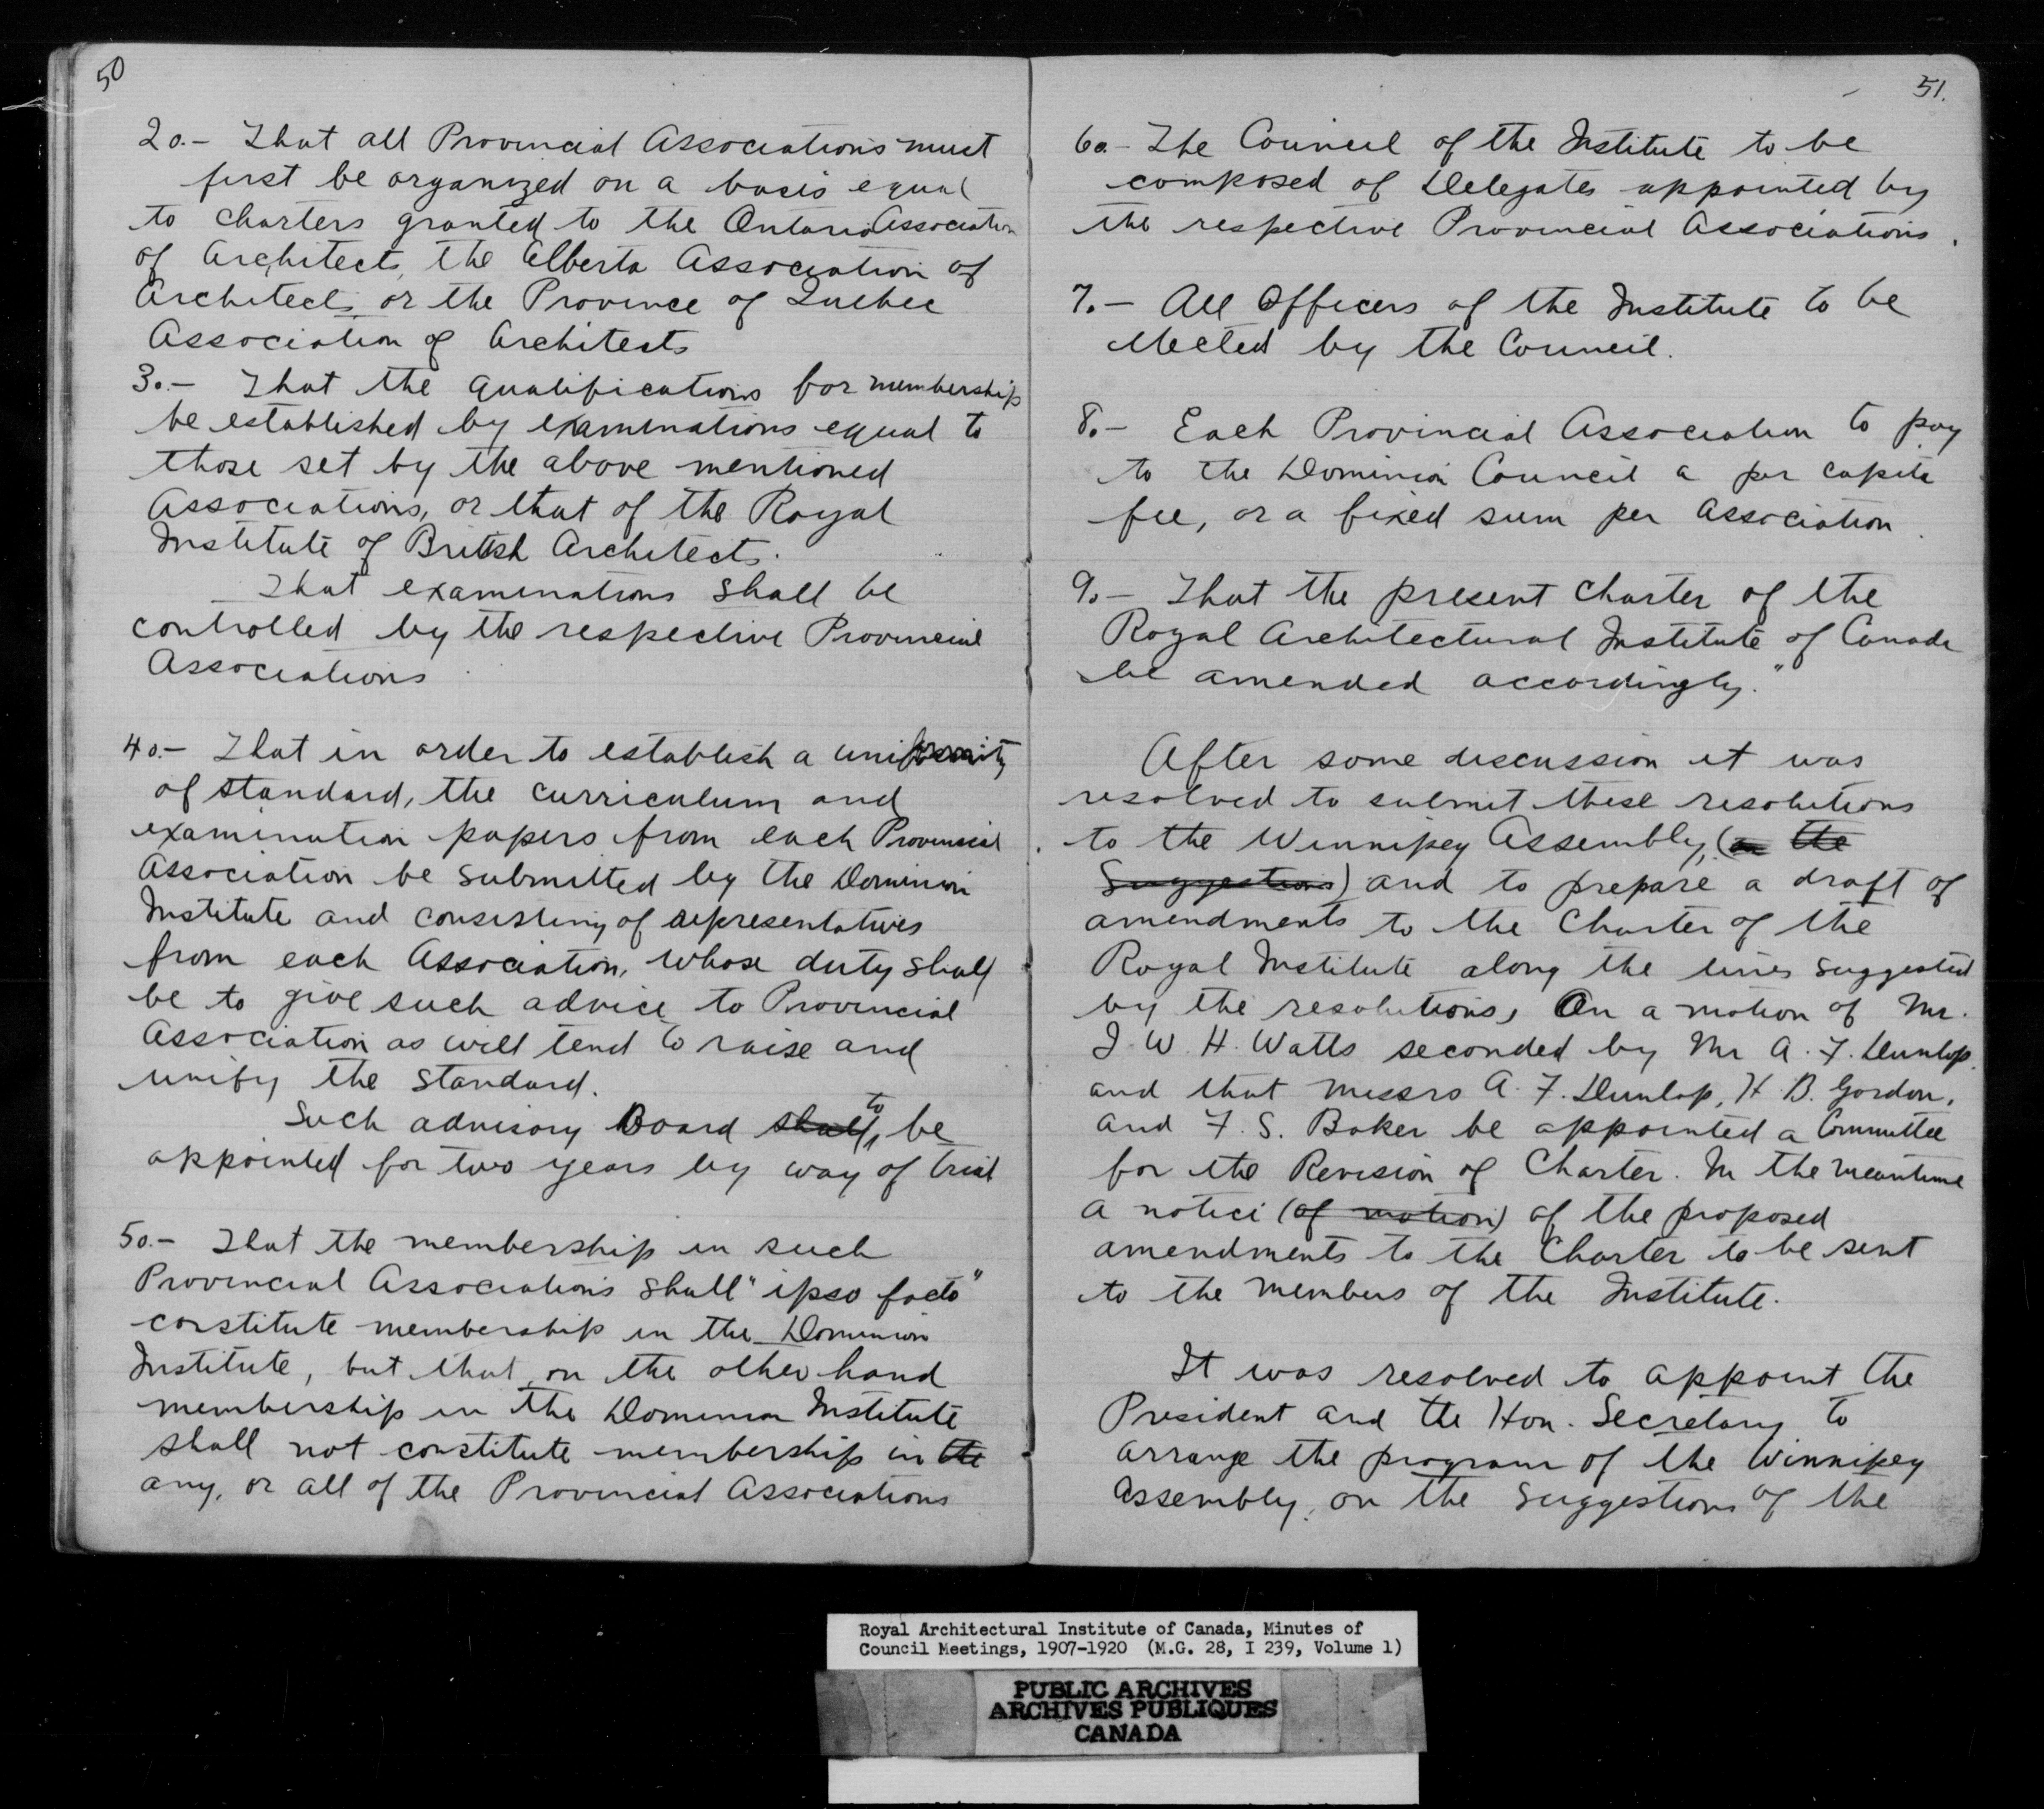 50
2o.- That all Provincial Associations must
first be organized on a basis equal
to charters granted to the Ontario Association
of Architects, the Alberta Association of
Architects or the Province of Quebec
Association of Architects
3o.- That the qualifications for membership
be established by examinations equal to
those set by the above mentioned
Associations, or that of the Royal
Institute of British Architects.
That examinations shall be
controlled by the respective Provincial
Associations
4o.- That in order to establish a uniformity
of standard, the curriculum and
examination papers from each Provincial
Association be submitted by the Dominion
Institute and consisting of representatives
from each Association, whose duty shall
be to give such advice to Provincial
Association as will tend to raise and
unify the standard.
Such advisory Board shall to be
appointed for two years by way of trial
5o.- That the membership in such
Provincial Associations shall "ipso facto"
constitute membership in the Dominion
Institute, but that, on the other hand
membership in the Dominion Institute
shall not constitute membership in the
any, or all of the Provincial Associations
51.
6o.- The Council of the Institute to be
composed of Delegates appointed by
the respective Provincial Associations.
7.- All Officers of the Institute to be
elected by the Council.
8.- Each Provincial Association to pay
to the Dominion Council a per capita
fee, or a fixed sum per Association.
9.- That the present Charter of the
Royal Architectural Institute of Canada
be amended accordingly."
After some discussion it was
resolved to submit these resolutions
to the Winnipeg Assembly, (on the
Suggestions) and to prepare a draft of
amendments to the Charter of the
Royal Institute along the lines suggested
by the resolutions, On a motion of Mr.
J. W. H. Watts seconded by Mr A. F. Dunlop.
and that Messrs A. F. Dunlop, H. B. Gordon,
and F. S. Baker be appointed a Committee
for the Revision of Charter. In the meantime
a notice (of motion) of the proposed
amendments to the Charter to be sent
to the members of the Institute.
It was resolved to appoint the
President and the Hon. Secretary to
arrange the program of the Winnipeg
Assembly, on the suggestions of the
Royal Architectural Institute of Canada, Minutes of
Council Meetings, 1907-1920 (M.G. 28, I 239, Volume 1)
PUBLIC ARCHIVES
ARCHIVES PUBLIQUES
CANADA